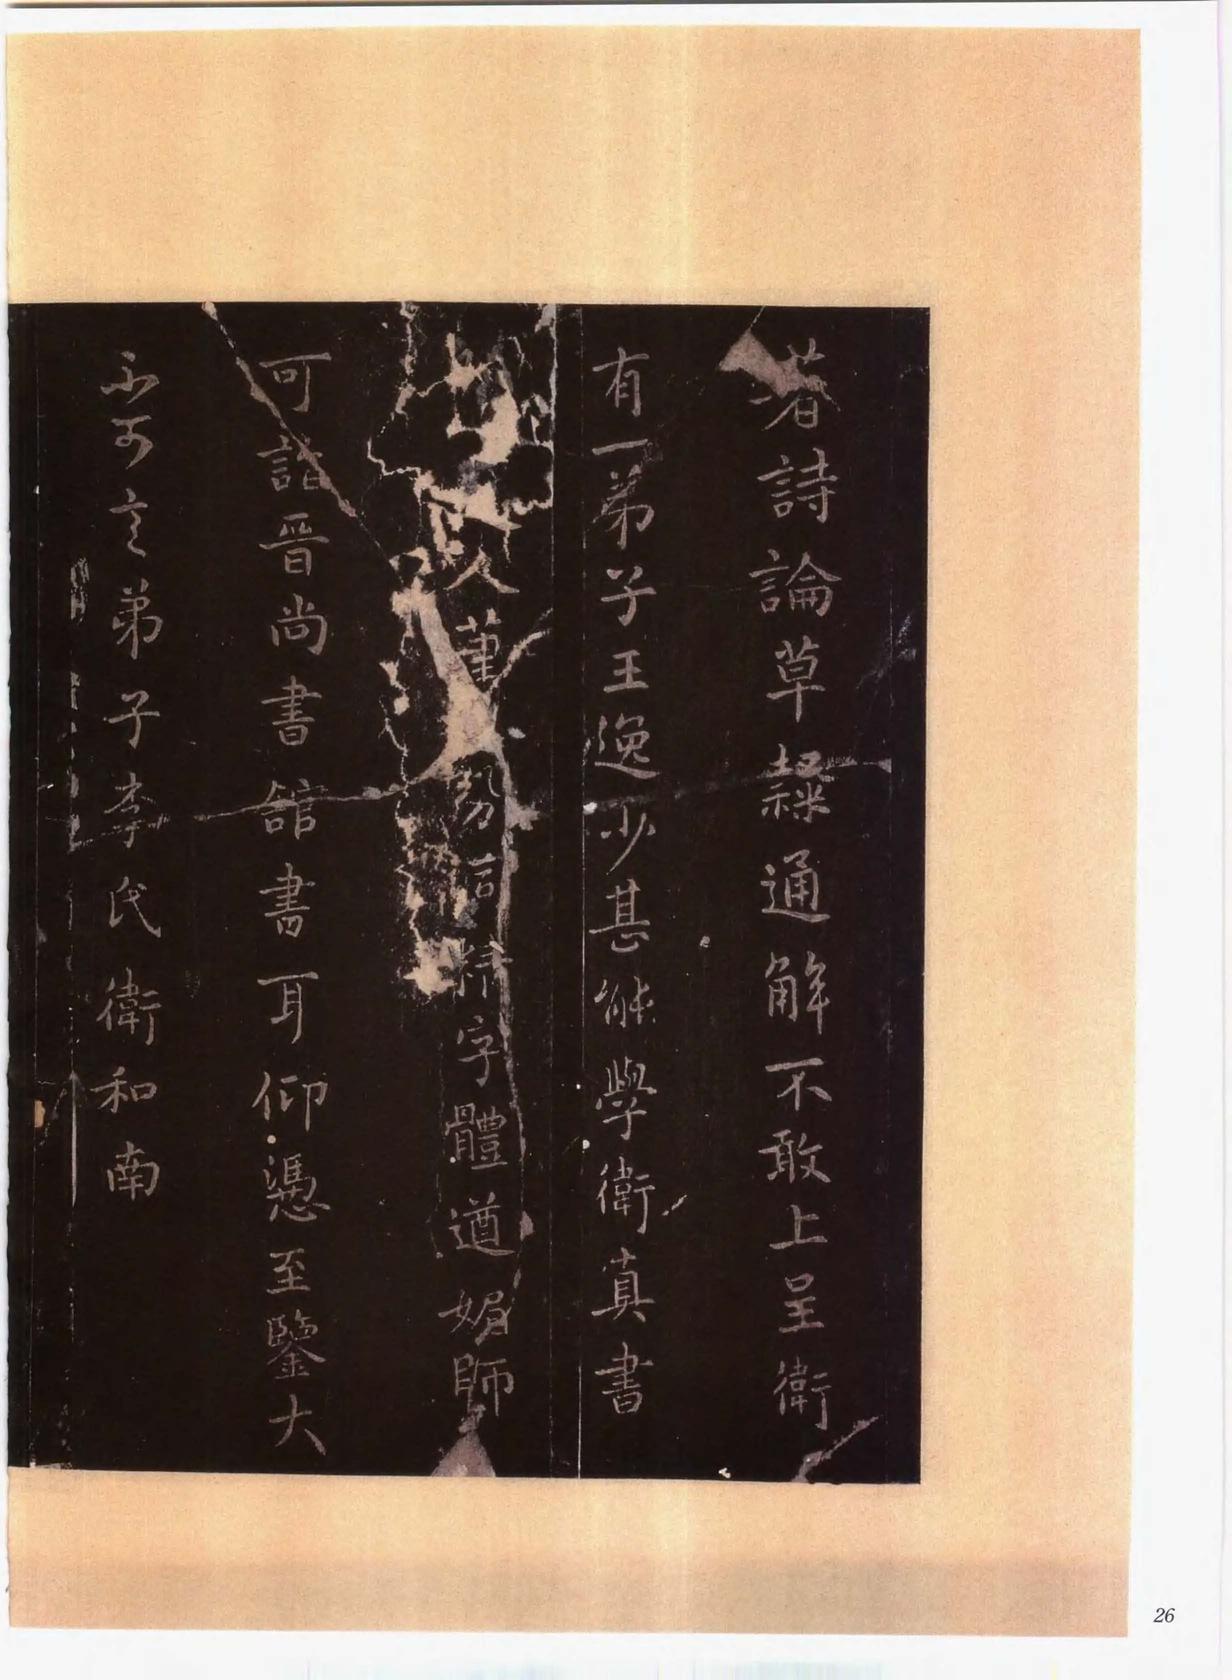 著詩論草隸通解不敢上呈衛
有一弟子王逸少甚能學衛真書
人筆勢洞精字體遒媚師
可詣晉尚書館書耳仰憑至鑒大
不可言弟子李氏衛和南
26